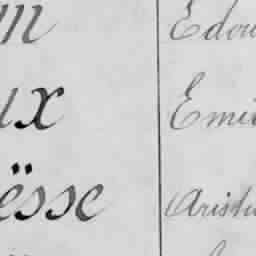 m Edou
ux Emi
ësse Aristi